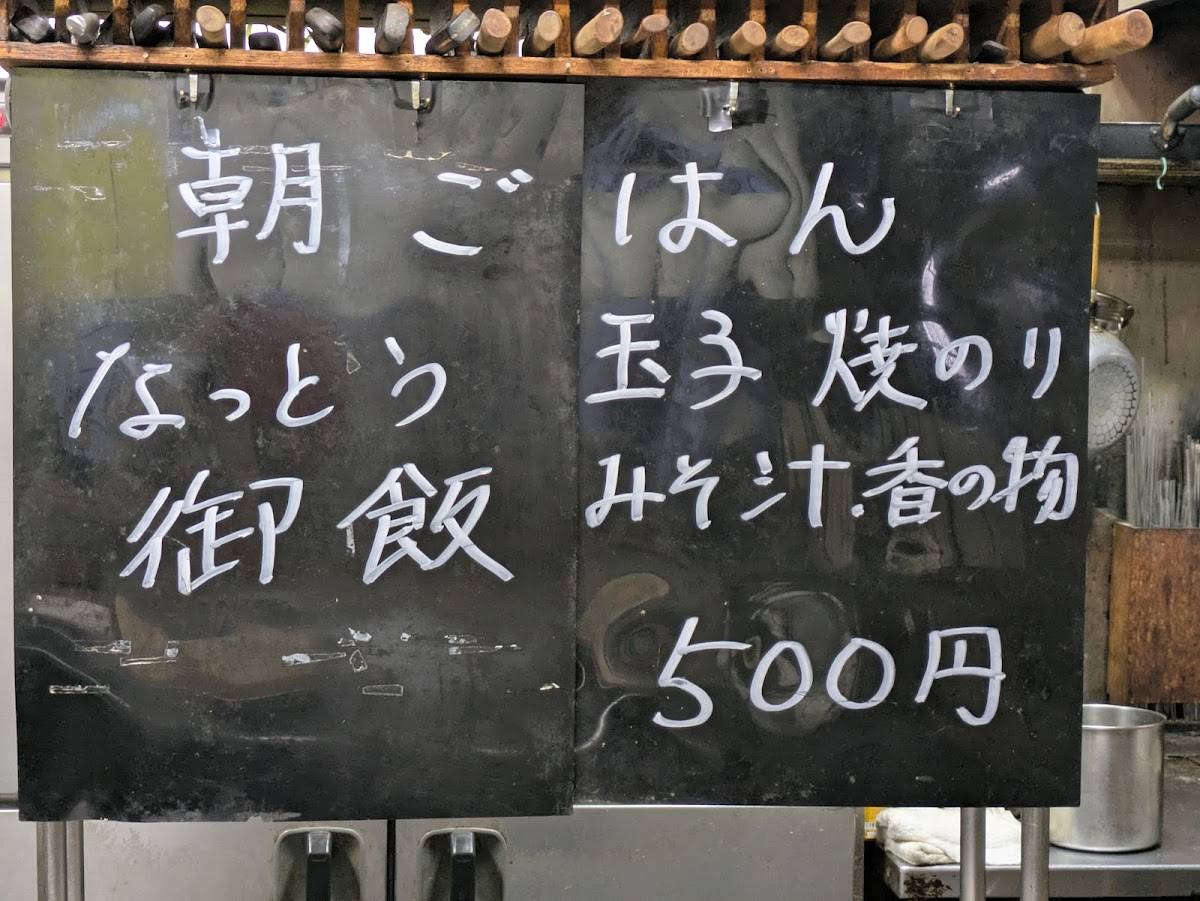 朝ごはん
なっとう 玉子 焼のり
御飯 みそ汁.香の物
500円